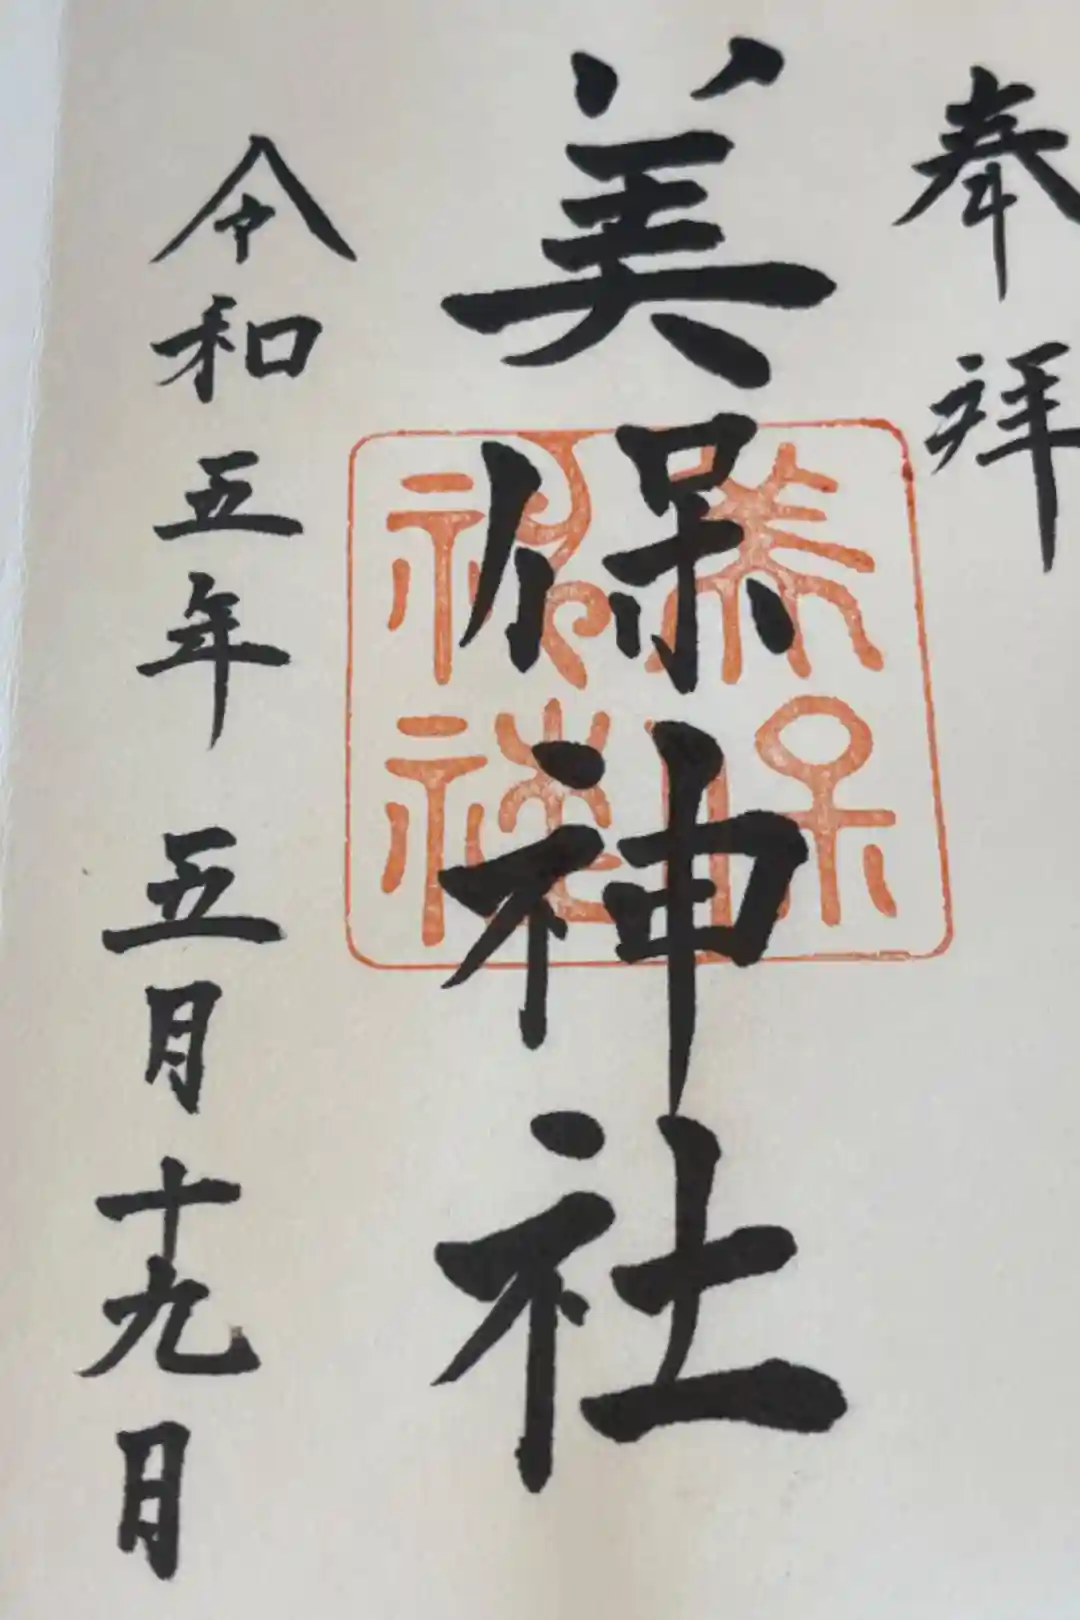 奉拝
美保神社
美保神社
令和五年五月十九日